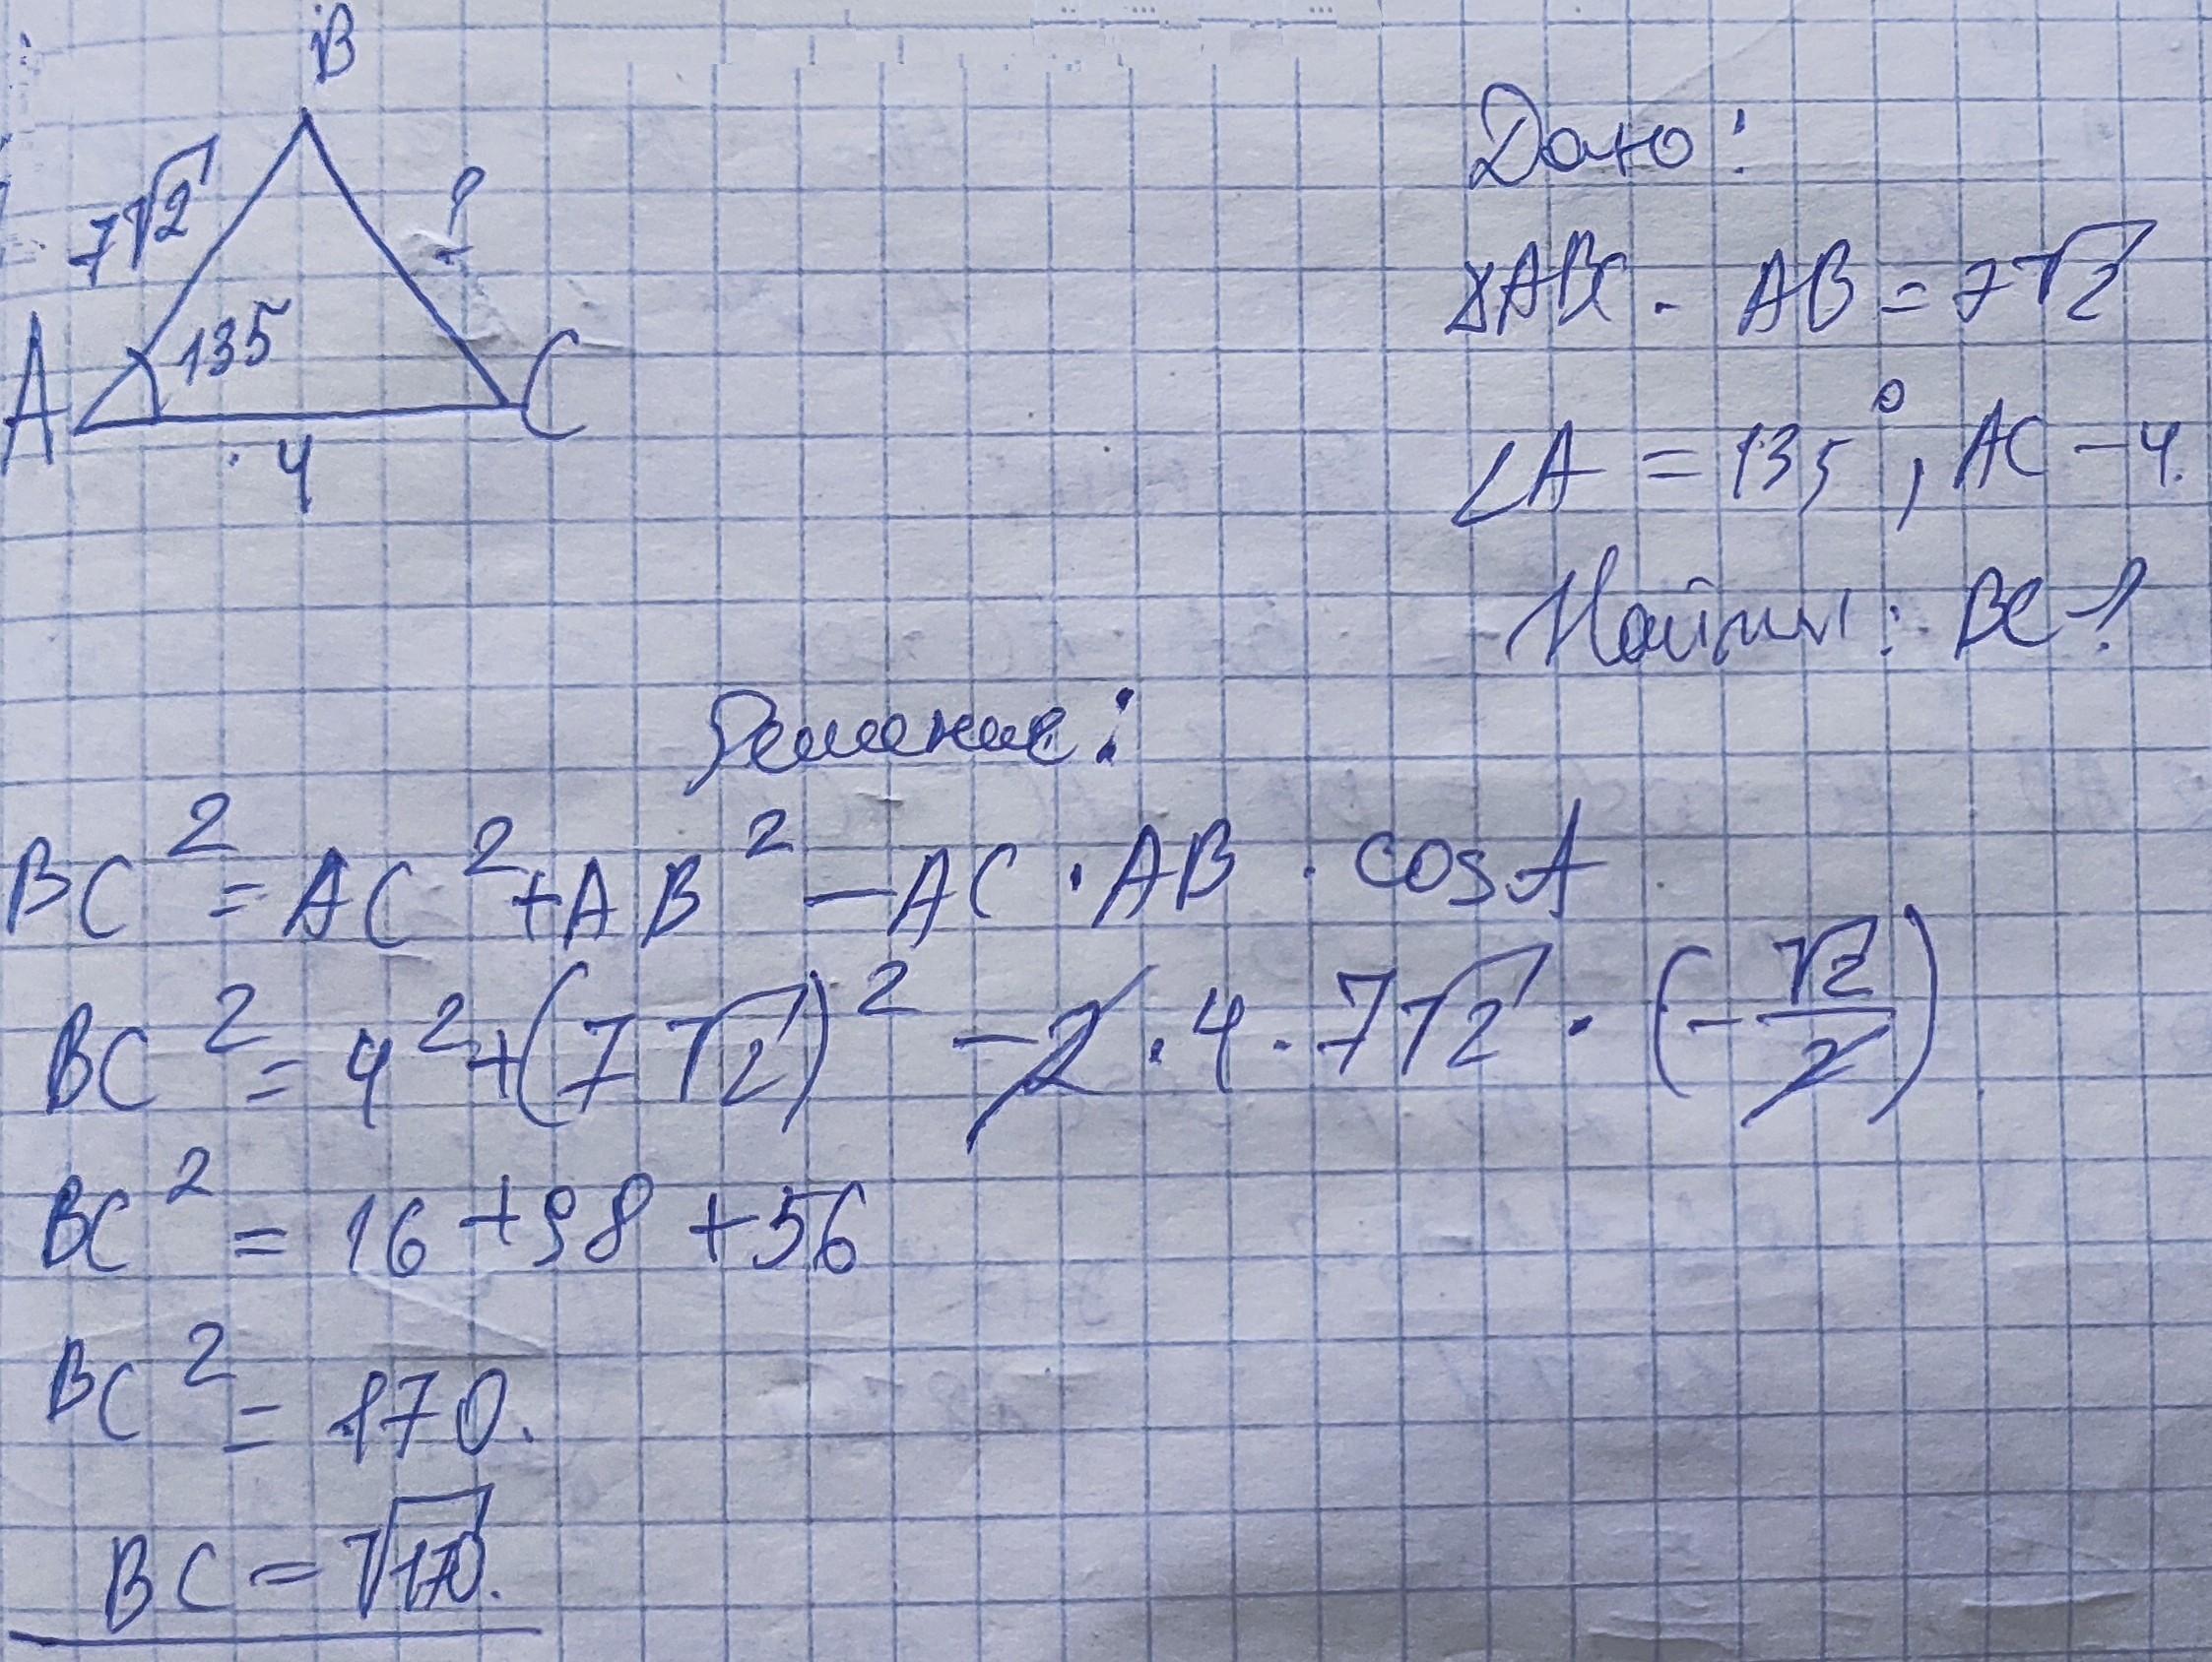 B
7√2
?
A
135
C
4
Дано:
△ABC - AB = 7√2
∠A = 135°, AC - 4.
Найти: BC-?
Решение:
BC² = AC² + AB² - AC · AB · cos A
BC² = 4² + (7√2)² - 2 · 4 · 7√2 · (-√2/2)
BC² = 16 + 98 + 56
BC² = 170.
BC = √170.